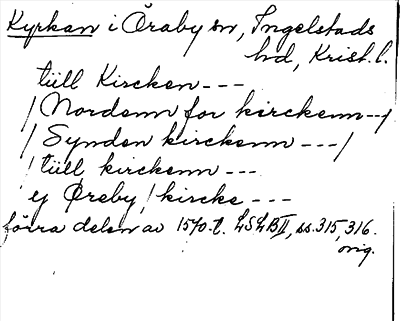 Kyrkan i Öraby sn, Ingelstads
hd, Krist. l.
tüll Kircken ---
/ Nordenn for kirckenn --/
/ Synden kirckenn ---/
/ tüll kirckenn ---
ej Øreby / kircke ---
förra delen av 1570-t. LSLB II, ss. 315, 316.
orig.